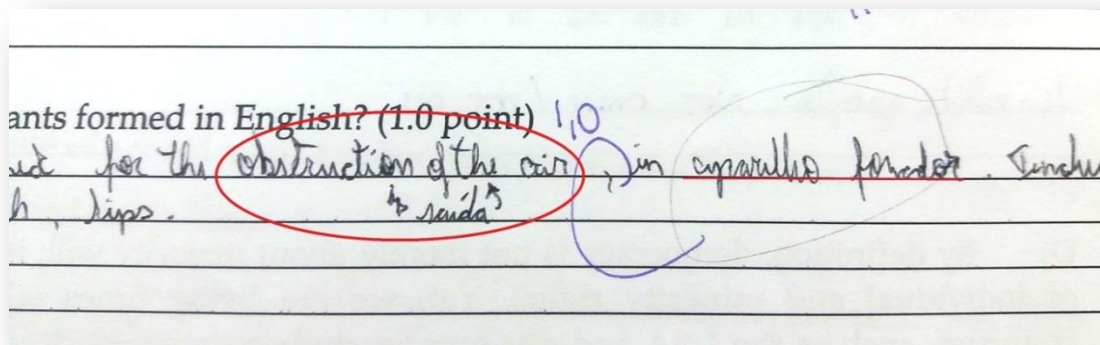 ants formed in English? (1.0 point) 1,0
for the obstruction of the air, in aparelho fonador.
lips. saída